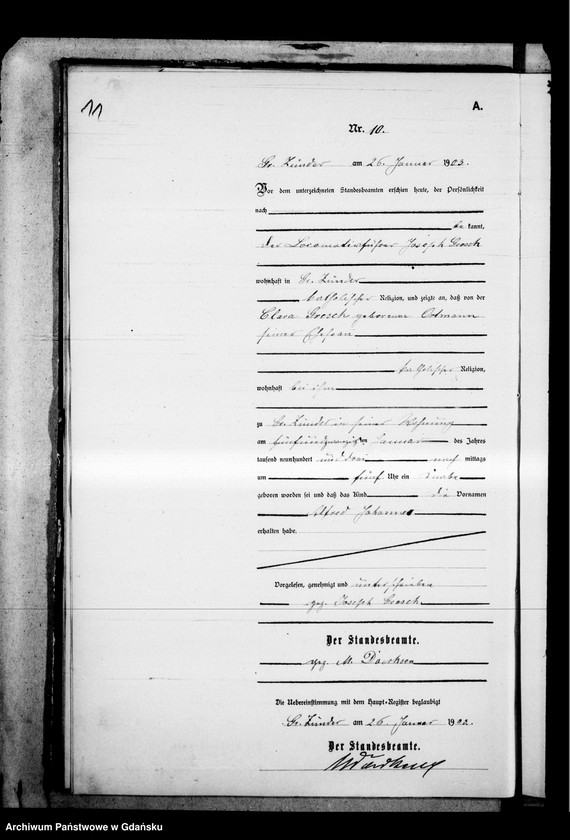 11
A.
Nr. 10.
Gr. Zünder am 26. Januar 1903.
Vor dem unterzeichneten Standesbeamten erschien heute, der Persönlichkeit
nach
be kannt,
der Locomotivführer Joseph Grosch
wohnhaft in Gr. Zünder
katholischer Religion, und zeigte an, daß von der
Clara Grosch geborenen Ortmann
seiner Ehefrau
katholischer Religion,
wohnhaft bei ihm
zu Gr. Zünder in seiner Wohnung
am fünfundzwanzigsten Januar des Jahres
tausend neunhundert und drei nach mittags
um fünf Uhr ein Knabe
geboren worden sei und daß das Kind die Vornamen
Alfred Johannes
erhalten habe.
Vorgelesen, genehmigt und unterschrieben
gez. Joseph Grosch
Der Standesbeamte.
gez. M. Doerksen
Die Uebereinstimmung mit dem Haupt-Register beglaubigt
Gr. Zünder am 26. Januar 1903.
Der Standesbeamte.
MDoerksen
Archiwum Państwowe w Gdańsku